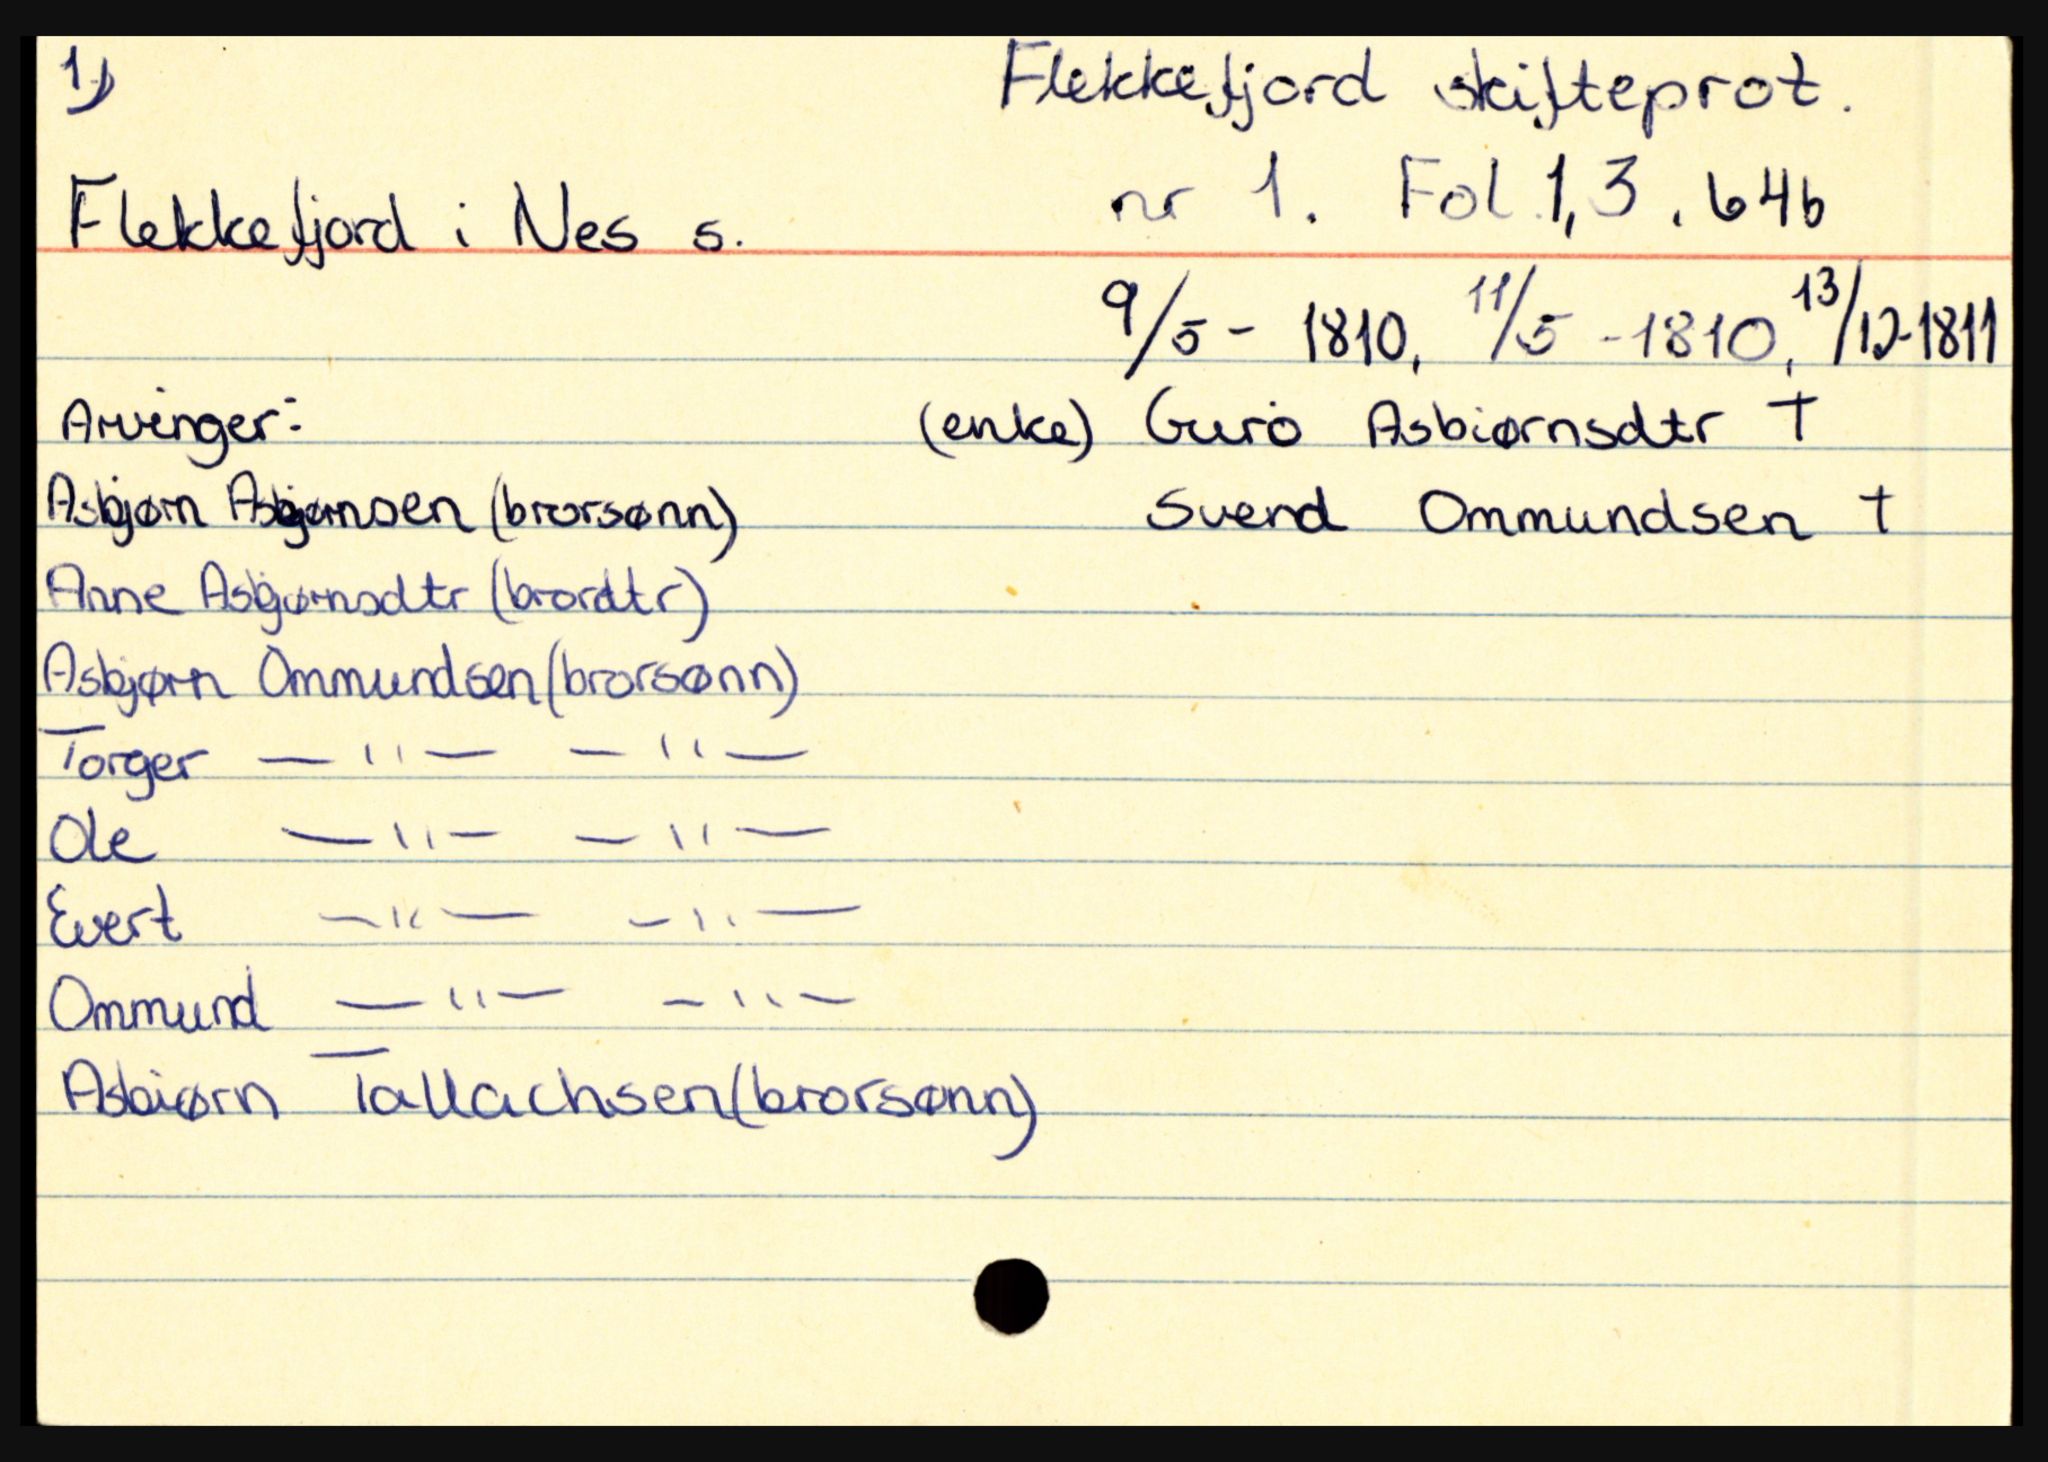 1)
Flekkefjord skifteprot.
nr 1. Fol 1,3. 64b
Flekkefjord i Nes s.
9/5 - 1810, 11/5 - 1810, 13/12-1811
Arvinger: (enke) Guro Asbiørnsdtr †
Asbjørn Asbjørnsen (brorsønn) Svend Ommundsen †
Anne Asbjørnsdtr (brordtr)
Asbjørn Ommundsen (brorsønn)
Torger — " — — " —
Ole — " — — " —
Evert — " — — " —
Ommund — " — — " —
Asbiørn Tallachsen (brorsønn)